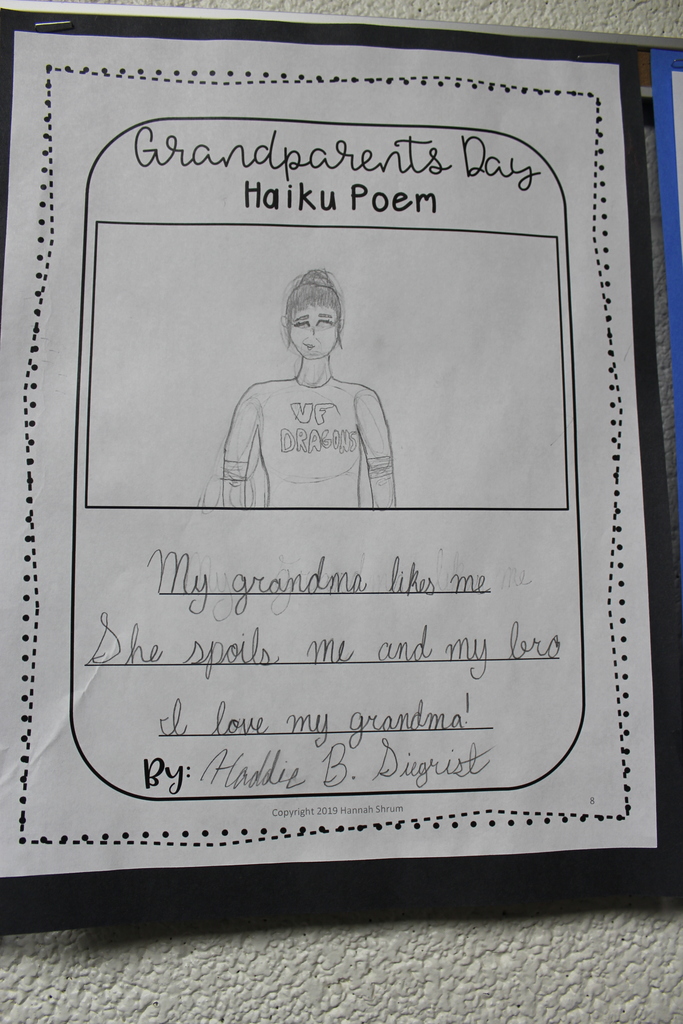 Grandparents Day
Haiku Poem
VF
DRAGONS
My grandma likes me
She spoils me and my bro
I love my grandma!
By: Haddie B. Siegrist
Copyright 2019 Hannah Shrum
8